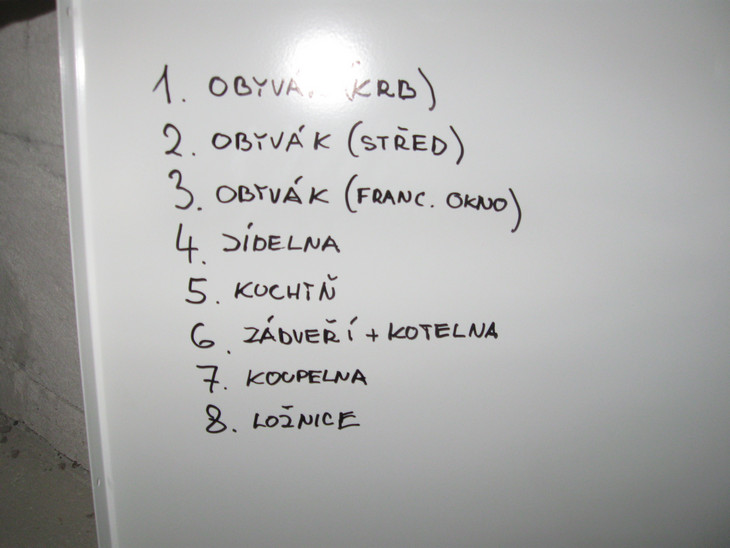 1. OBYVÁK (KRB)
2. OBYVÁK (STŘED)
3. OBYVÁK (FRANC. OKNO)
4. JÍDELNA
5. KUCHYŇ
6. ZÁDVEŘÍ + KOTELNA
7. KOUPELNA
8. LOŽNICE